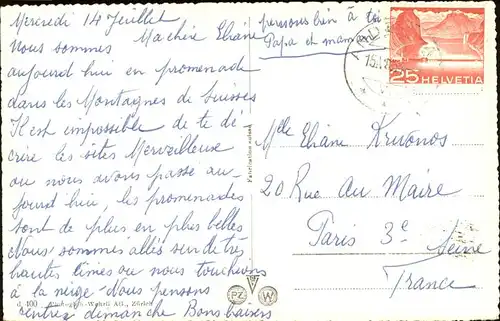 Mercredi 14 Juillet
Ma chère Eliane
Nous sommes
aujourd'hui en promenade
dans les Montagnes de Suisses
Il est impossible de te dé
crire les sites Merveilleuse
ou nous avons passé au-
jourd'hui, les promenades
sont de plus en plus belles
Nous sommes allés sur de très
hautes cimes ou nous touchions
à la neige Nous pensons
rentrez dimanche Bons baisers
pensons bien à toi
Papa et maman
25 HELVETIA
Mlle Eliane Krivonos
20 Rue Au Maire
Paris 3e
Seine
France
Fabrication suisse
PZ W
AG., Zürich